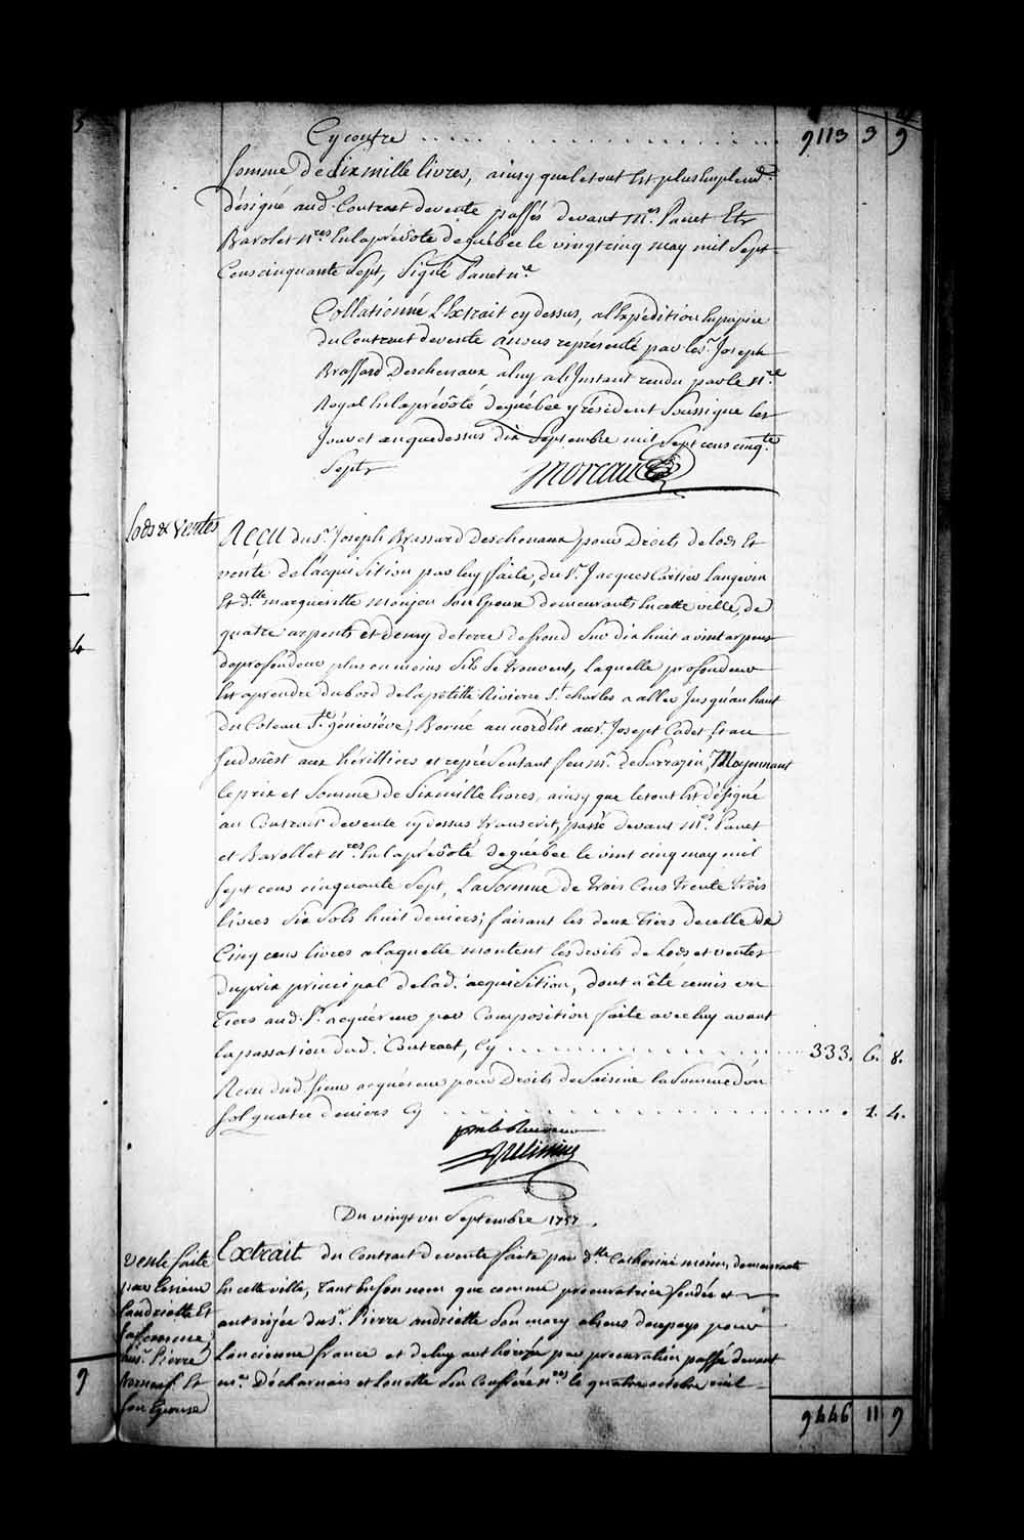 Cy contre . . . . . . . . . . . . . . 9113 3 9
Somme de Six mille livres, ainsy que le tout Est plus Emplemt.
désigné aud. Contract de vente passés devant Mes. Panet Et
Barolet nres En la prévôté de québec le vingt cinq may mil Sept
Cens cinquante Sept, Signé Panet nre
Collationné L'Extrait cy dessus, a l'Expédition En papier
du Contract de vente a nous représenté par le Sr. Joseph
Brassard Deschenaux a luy a l'Instant rendu par le nre.
Royal En la prévôté de québec y résident Soussigné les
Jour et an que dessus dix Septembre mil Sept cens cinqte.
Sept
Moreau
Lods & Ventes
Reçu du Sr. Joseph Brassard Deschenaux pour Droits de lods Et
vente de l'acquisition par luy faite, du Sr. Jacques Cartier Langevin
Et dlle. margueritte Monjon Son Epouse demeurants En cette ville, de
quatre arpents et demy de terre de frond Sur dix huit a vint arpens
de profondeur plus ou moins S'ils Se trouvent, laquelle profondeur
Est a prendre du bord de la petitte Riviere St. charles a aller Jusqu'au haut
du Coteau Ste. géneviéve; Borné au nord Est au Sr. Joseph Cadet, Et au
Sud ouest aux héritiers et représentant feu Mr. de Sarrazin, Moyennant
le prix et Somme de Six mille livres, ainsy que le tout Est désigné
au Contract de vente cy dessus transcrit, passé devant Mes. Panet
et Barollet nres En la prévôté de québec le vint cinq may mil
Sept cens cinquante Sept, La Somme de trois Cens trente trois
livres Six Sols huit deniers; faisant les deux tiers de celle de
Cinq cens livres a laquelle montent les droits de Lods et ventes
du prix principal de lad. acquisition, dont a été remis un
tiers aud. Sr. acquéreur par Composition faite avec luy avant
la passation dud. Contract, Cy . . . . . . . . . . . . 333. 6. 8.
Reçu dud. Sieur acquéreur pour Droits de Saisine la Somme d'un
Sol quatre deniers Cy . . . . . . . . . . . . . . . . 1. 4.
Du vingt un Septembre 1757.
vente faite
par le sieur
landriotte Et
Sa femme;
au Sr. Pierre
Et
Son Epouse
Extrait du Contract de vente faite par dlle. Catherine moine, demeurante
En cette ville, tant En Son nom que comme procuratrice fondée et
autorizée du Sr. Pierre andriotte Son mary absens du pays pour
L'ancienne france et de luy authorizé par procuration passée devant
me. Décharnais et Son Confrére nres. le quatre octobre mil
9446 11 9